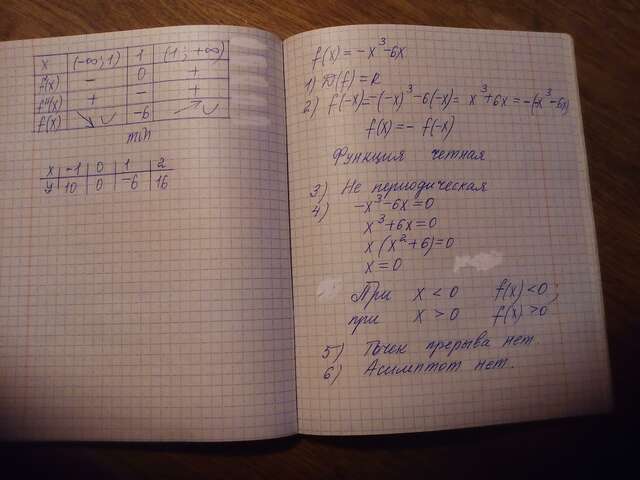 x (-∞; 1) 1 (1; +∞)
f'(x) - 0 +
f''(x) + - +
f(x) ↘ ∪ -6 ↗ ∪
min
x -1 0 1 2
y 10 0 -6 16
f(x) = -x³-6x
1) D(f) = R
2) f(-x)=-(-x)³-6(-x)= x³+6x = -(-x³-6x)
f(x) = - f(-x)
Функция четная
3) Не периодическая
4) -x³-6x=0
x³+6x=0
x(x²+6)=0
x=0
При x < 0 f(x)<0;
при x > 0 f(x)>0
5) Точек прерыва нет
6) Асимптот нет.